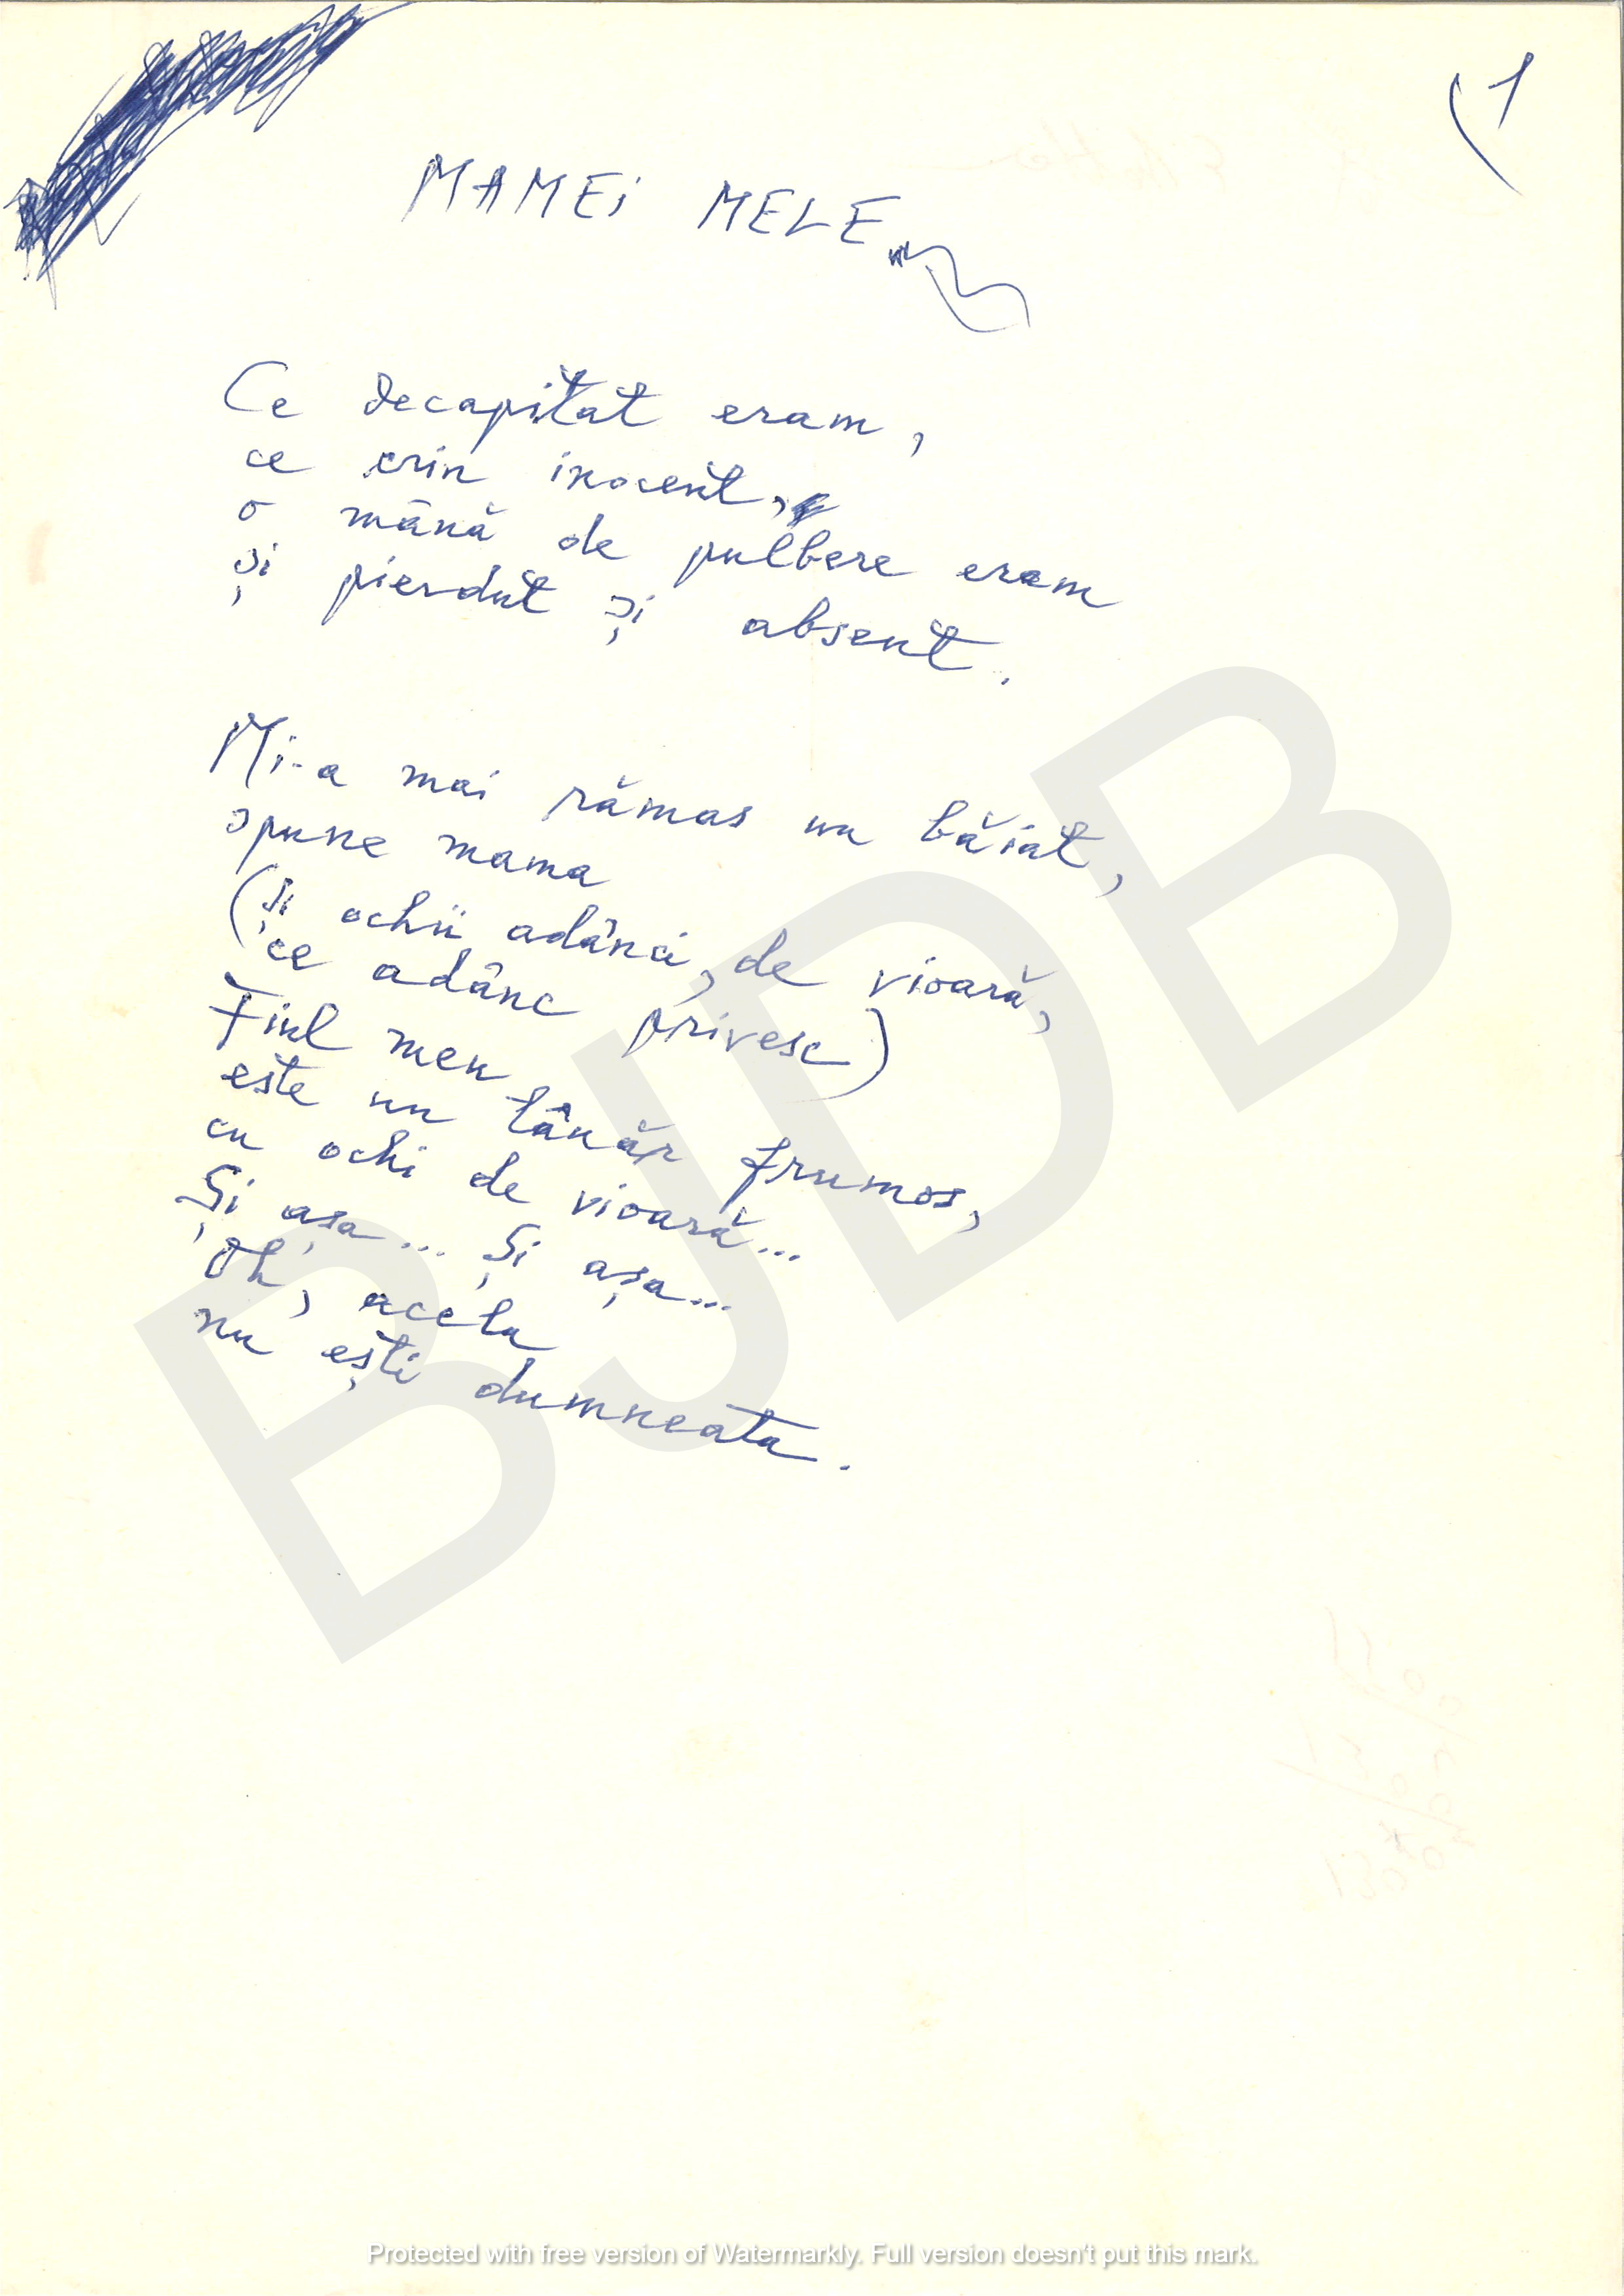 1
MAMEi MELE
Ce decapitat eram,
ce crin inocent,
o mână de pulbere eram
și pierdut și absent.
Mi-a mai rămas un băiat,
spune mama
(și ochii adânci, de vioară,
ce adânc privesc)
Fiul meu
este un tânăr frumos,
cu ochi de vioară...
Și așa... Și așa...
Oh, acela
nu ești dumneata.
BJDB
Protected with free version of Watermarkly. Full version doesn't put this mark.